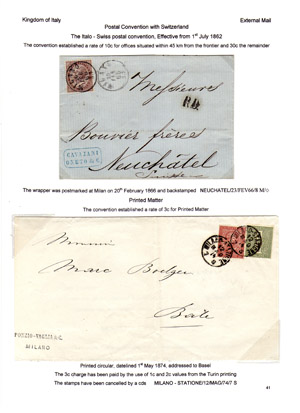 Kingdom of Italy
External Mail
Postal Convention with Switzerland
The Italo - Swiss postal convention, Effective from 1st July 1862
The convention established a rate of 10c for offices situated within 45 km from the frontier and 30c the remainder
Messieurs
P.D.
Bouvier frères
Neuchâtel
Suisse
The wrapper was postmarked at Milan on 20th February 1866 and backstamped NEUCHATEL/23/FEV66/8 M/o
Printed Matter
The convention established a rate of 3c for Printed Matter
Monsieur
Marc
Bale
MILANO
Printed circular, datelined 1st May 1874, addressed to Basel
The 3c charge has been paid by the use of 1c and 2c values from the Turin printing
The stamps have been cancelled by a cds MILANO - STATIONE/12/MAG/74/7 S
41